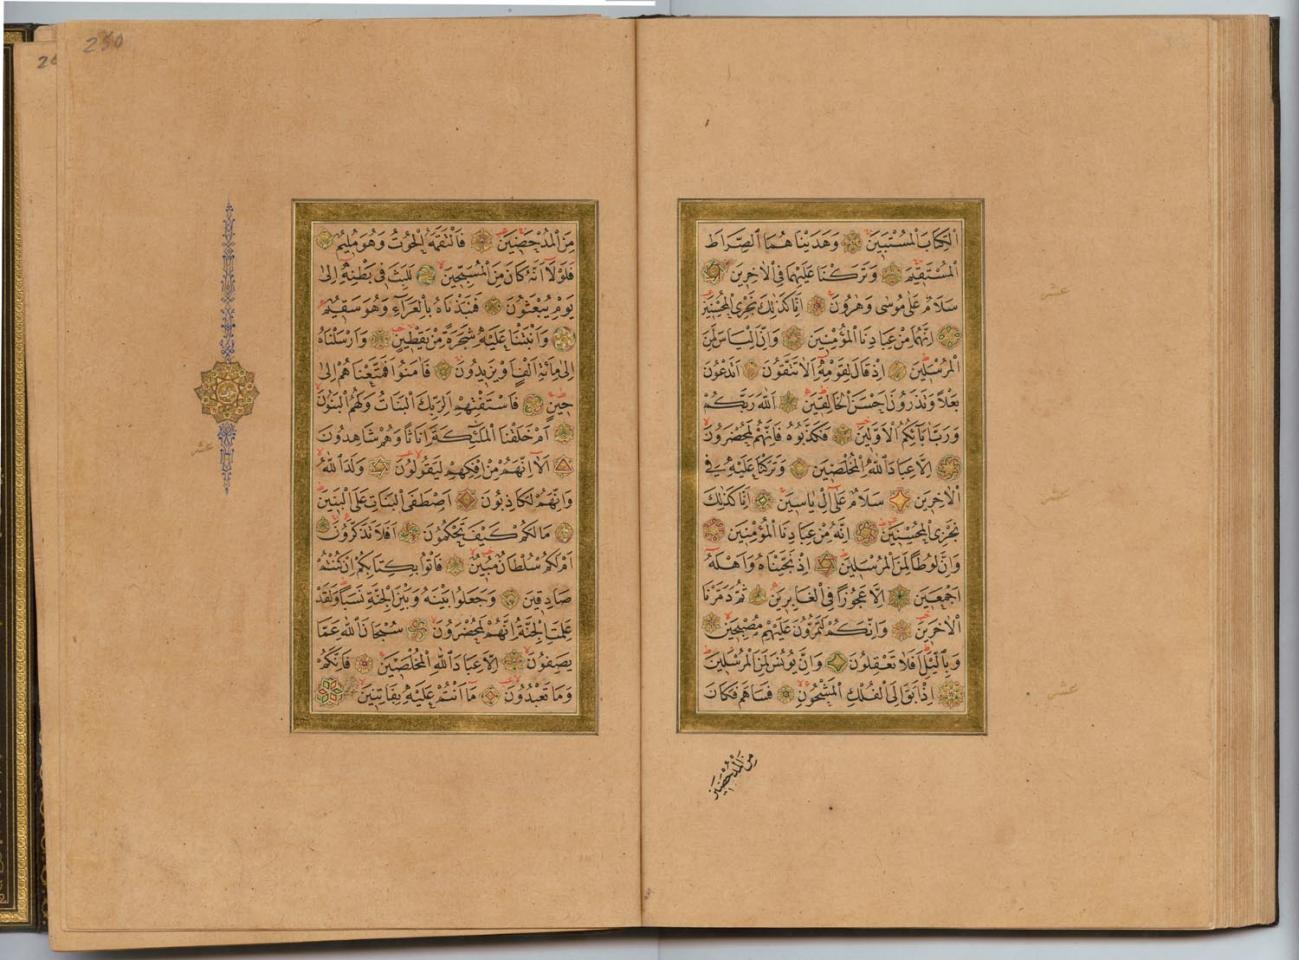 الْكِتَابَ الْمُسْتَبِينَ وَهَدَيْنَاهُمَا الصِّرَاطَ
الْمُسْتَقِيمَ وَتَرَكْنَا عَلَيْهِمَا فِي الْاٰخِرِينَ
سَلَامٌ عَلٰى مُوسٰى وَهٰرُونَ اِنَّا كَذٰلِكَ نَجْزِي الْمُحْسِنِينَ
اِنَّهُمَا مِنْ عِبَادِنَا الْمُؤْمِنِينَ وَاِنَّ اِلْيَاسَ لَمِنَ
الْمُرْسَلِينَ اِذْ قَالَ لِقَوْمِهٖ اَلَا تَتَّقُونَ اَتَدْعُونَ
بَعْلًا وَتَذَرُونَ اَحْسَنَ الْخَالِقِينَ اَللّٰهَ رَبَّكُمْ
وَرَبَّ اٰبَائِكُمُ الْاَوَّلِينَ فَكَذَّبُوهُ فَاِنَّهُمْ لَمُحْضَرُونَ
اِلَّا عِبَادَ اللّٰهِ الْمُخْلَصِينَ وَتَرَكْنَا عَلَيْهِ فِي
الْاٰخِرِينَ سَلَامٌ عَلٰى اِلْ يَاسِينَ اِنَّا كَذٰلِكَ
نَجْزِي الْمُحْسِنِينَ اِنَّهُ مِنْ عِبَادِنَا الْمُؤْمِنِينَ
وَاِنَّ لُوطًا لَمِنَ الْمُرْسَلِينَ اِذْ نَجَّيْنَاهُ وَاَهْلَهُ
اَجْمَعِينَ اِلَّا عَجُوزًا فِي الْغَابِرِينَ ثُمَّ دَمَّرْنَا
الْاٰخَرِينَ وَاِنَّكُمْ لَتَمُرُّونَ عَلَيْهِمْ مُصْبِحِينَ
وَبِالَّيْلِ اَفَلَا تَعْقِلُونَ وَاِنَّ يُونُسَ لَمِنَ الْمُرْسَلِينَ
اِذْ اَبَقَ اِلَى الْفُلْكِ الْمَشْحُونِ فَسَاهَمَ فَكَانَ
مِنَ الْمُدْحَضِينَ
عشر
عشر
عشر
230
مِنَ الْمُدْحَضِينَ فَالْتَقَمَهُ الْحُوتُ وَهُوَ مُلِيمٌ
فَلَوْلَا اَنَّهُ كَانَ مِنَ الْمُسَبِّحِينَ لَلَبِثَ فِي بَطْنِهٖ اِلٰى
يَوْمِ يُبْعَثُونَ فَنَبَذْنَاهُ بِالْعَرَاءِ وَهُوَ سَقِيمٌ
وَاَنْبَتْنَا عَلَيْهِ شَجَرَةً مِنْ يَقْطِينٍ وَاَرْسَلْنَاهُ
اِلٰى مِائَةِ اَلْفٍ اَوْ يَزِيدُونَ فَاٰمَنُوا فَمَتَّعْنَاهُمْ اِلٰى
حِينٍ فَاسْتَفْتِهِمْ اَلِرَبِّكَ الْبَنَاتُ وَلَهُمُ الْبَنُونَ
اَمْ خَلَقْنَا الْمَلٰئِكَةَ اِنَاثًا وَهُمْ شَاهِدُونَ
اَلَا اِنَّهُمْ مِنْ اِفْكِهِمْ لَيَقُولُونَ وَلَدَ اللّٰهُ
وَاِنَّهُمْ لَكَاذِبُونَ اَصْطَفَى الْبَنَاتِ عَلَى الْبَنِينَ
مَا لَكُمْ كَيْفَ تَحْكُمُونَ اَفَلَا تَذَكَّرُونَ
اَمْ لَكُمْ سُلْطَانٌ مُبِينٌ فَأْتُوا بِكِتَابِكُمْ اِنْ كُنْتُمْ
صَادِقِينَ وَجَعَلُوا بَيْنَهُ وَبَيْنَ الْجِنَّةِ نَسَبًا وَلَقَدْ
عَلِمَتِ الْجِنَّةُ اِنَّهُمْ لَمُحْضَرُونَ سُبْحَانَ اللّٰهِ عَمَّا
يَصِفُونَ اِلَّا عِبَادَ اللّٰهِ الْمُخْلَصِينَ فَاِنَّكُمْ
وَمَا تَعْبُدُونَ مَا اَنْتُمْ عَلَيْهِ بِفَاتِنِينَ
عشر